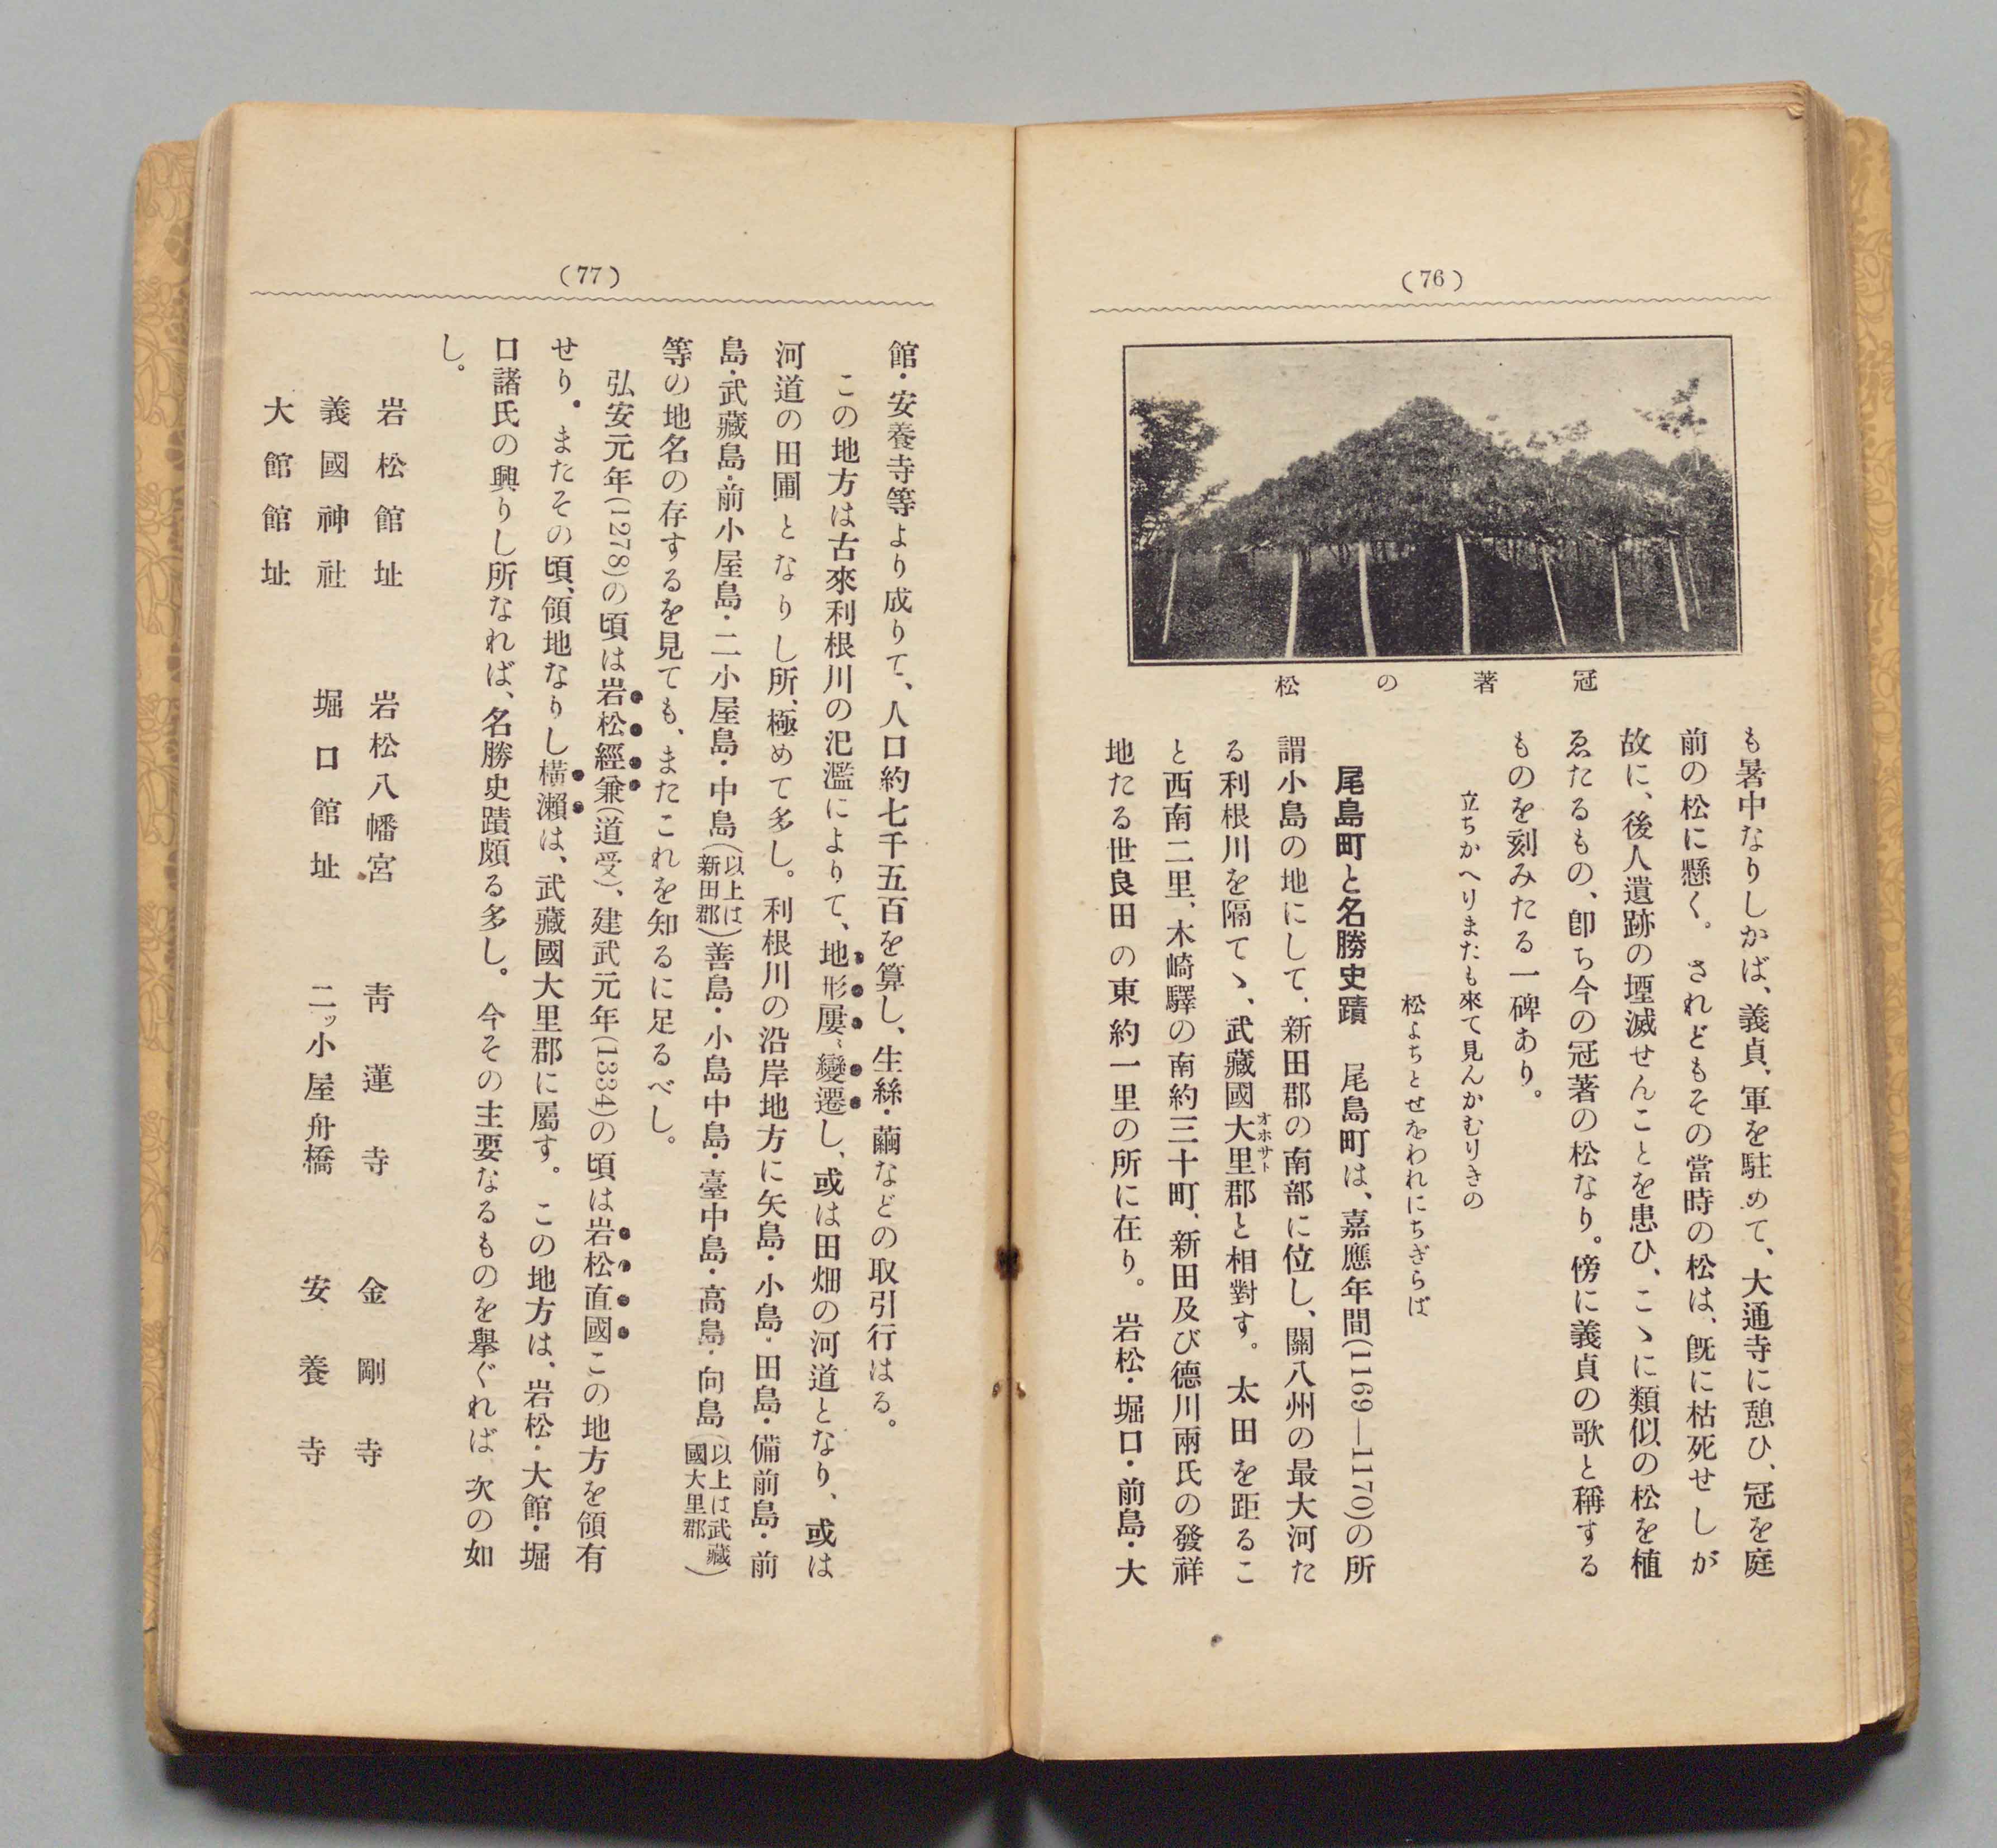 (76)
冠著の松
も暑中なりしかば、義貞、軍を駐めて、大通寺に憩ひ、冠を庭
前の松に懸く。されどもその當時の松は、既に枯死せしが
故に、後人遺跡の堙滅せんことを患ひ、こゝに類似の松を植
ゑたるもの、卽ち今の冠著の松なり。傍に義貞の歌と稱する
ものを刻みたる一碑あり。
立ちかへりまたも來て見んかむりきの
松よちとせをわれにちぎらば
尾島町と名勝史蹟　尾島町は、嘉應年間(1169—1170)の所
謂小島の地にして、新田郡の南部に位し、關八州の最大河た
る利根川を隔てゝ、武藏國大里郡と相對す。太田を距るこ
オホサト
と西南二里、木崎驛の南約三十町、新田及び德川兩氏の發祥
地たる世良田の東約一里の所に在り。岩松・堀口・前島・大
(77)
館・安養寺等より成りて、人口約七千五百を算し、生絲・繭などの取引行はる。
この地方は古來利根川の汜濫によりて、地形屢〻變遷し、或は田畑の河道となり、或は
河道の田圃となりし所、極めて多し。利根川の沿岸地方に矢島・小島・田島・備前島・前
島・武藏島・前小屋島・二小屋島・中島(以上は新田郡)善島・小島中島・臺中島・高島・向島(以上は武藏國大里郡)
等の地名の存するを見ても、またこれを知るに足るべし。
弘安元年(1278)の頃は岩松經兼(道受)、建武元年(1334)の頃は岩松直國この地方を領有
せり。またその頃、領地なりし橫瀨は、武藏國大里郡に屬す。この地方は、岩松・大館・堀
口諸氏の興りし所なれば、名勝史蹟頗る多し。今その主要なるものを擧ぐれば次の如
し。
岩松館址　岩松八幡宮　靑蓮寺　金剛寺
義國神社　堀口館址　二ッ小屋舟橋　安養寺
大館館址